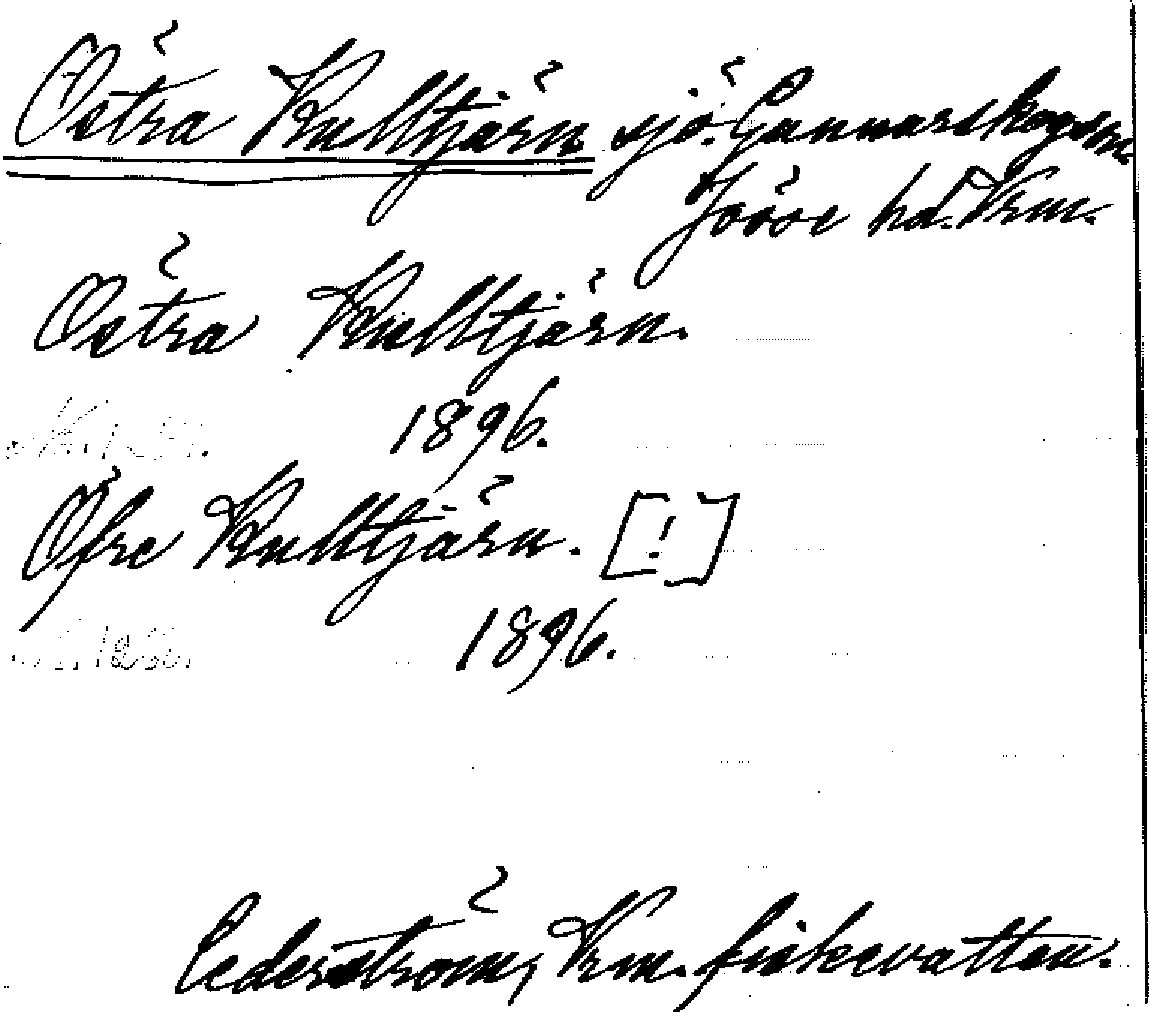 Östra Kulltjärn sjö. Gunnarskogsn
Jösse hd. Vrm.
Östra Kulltjärn.
1896.
Öfre Kulltjärn. [!]
1896.
Cederström, Vrm. fiskevatten.